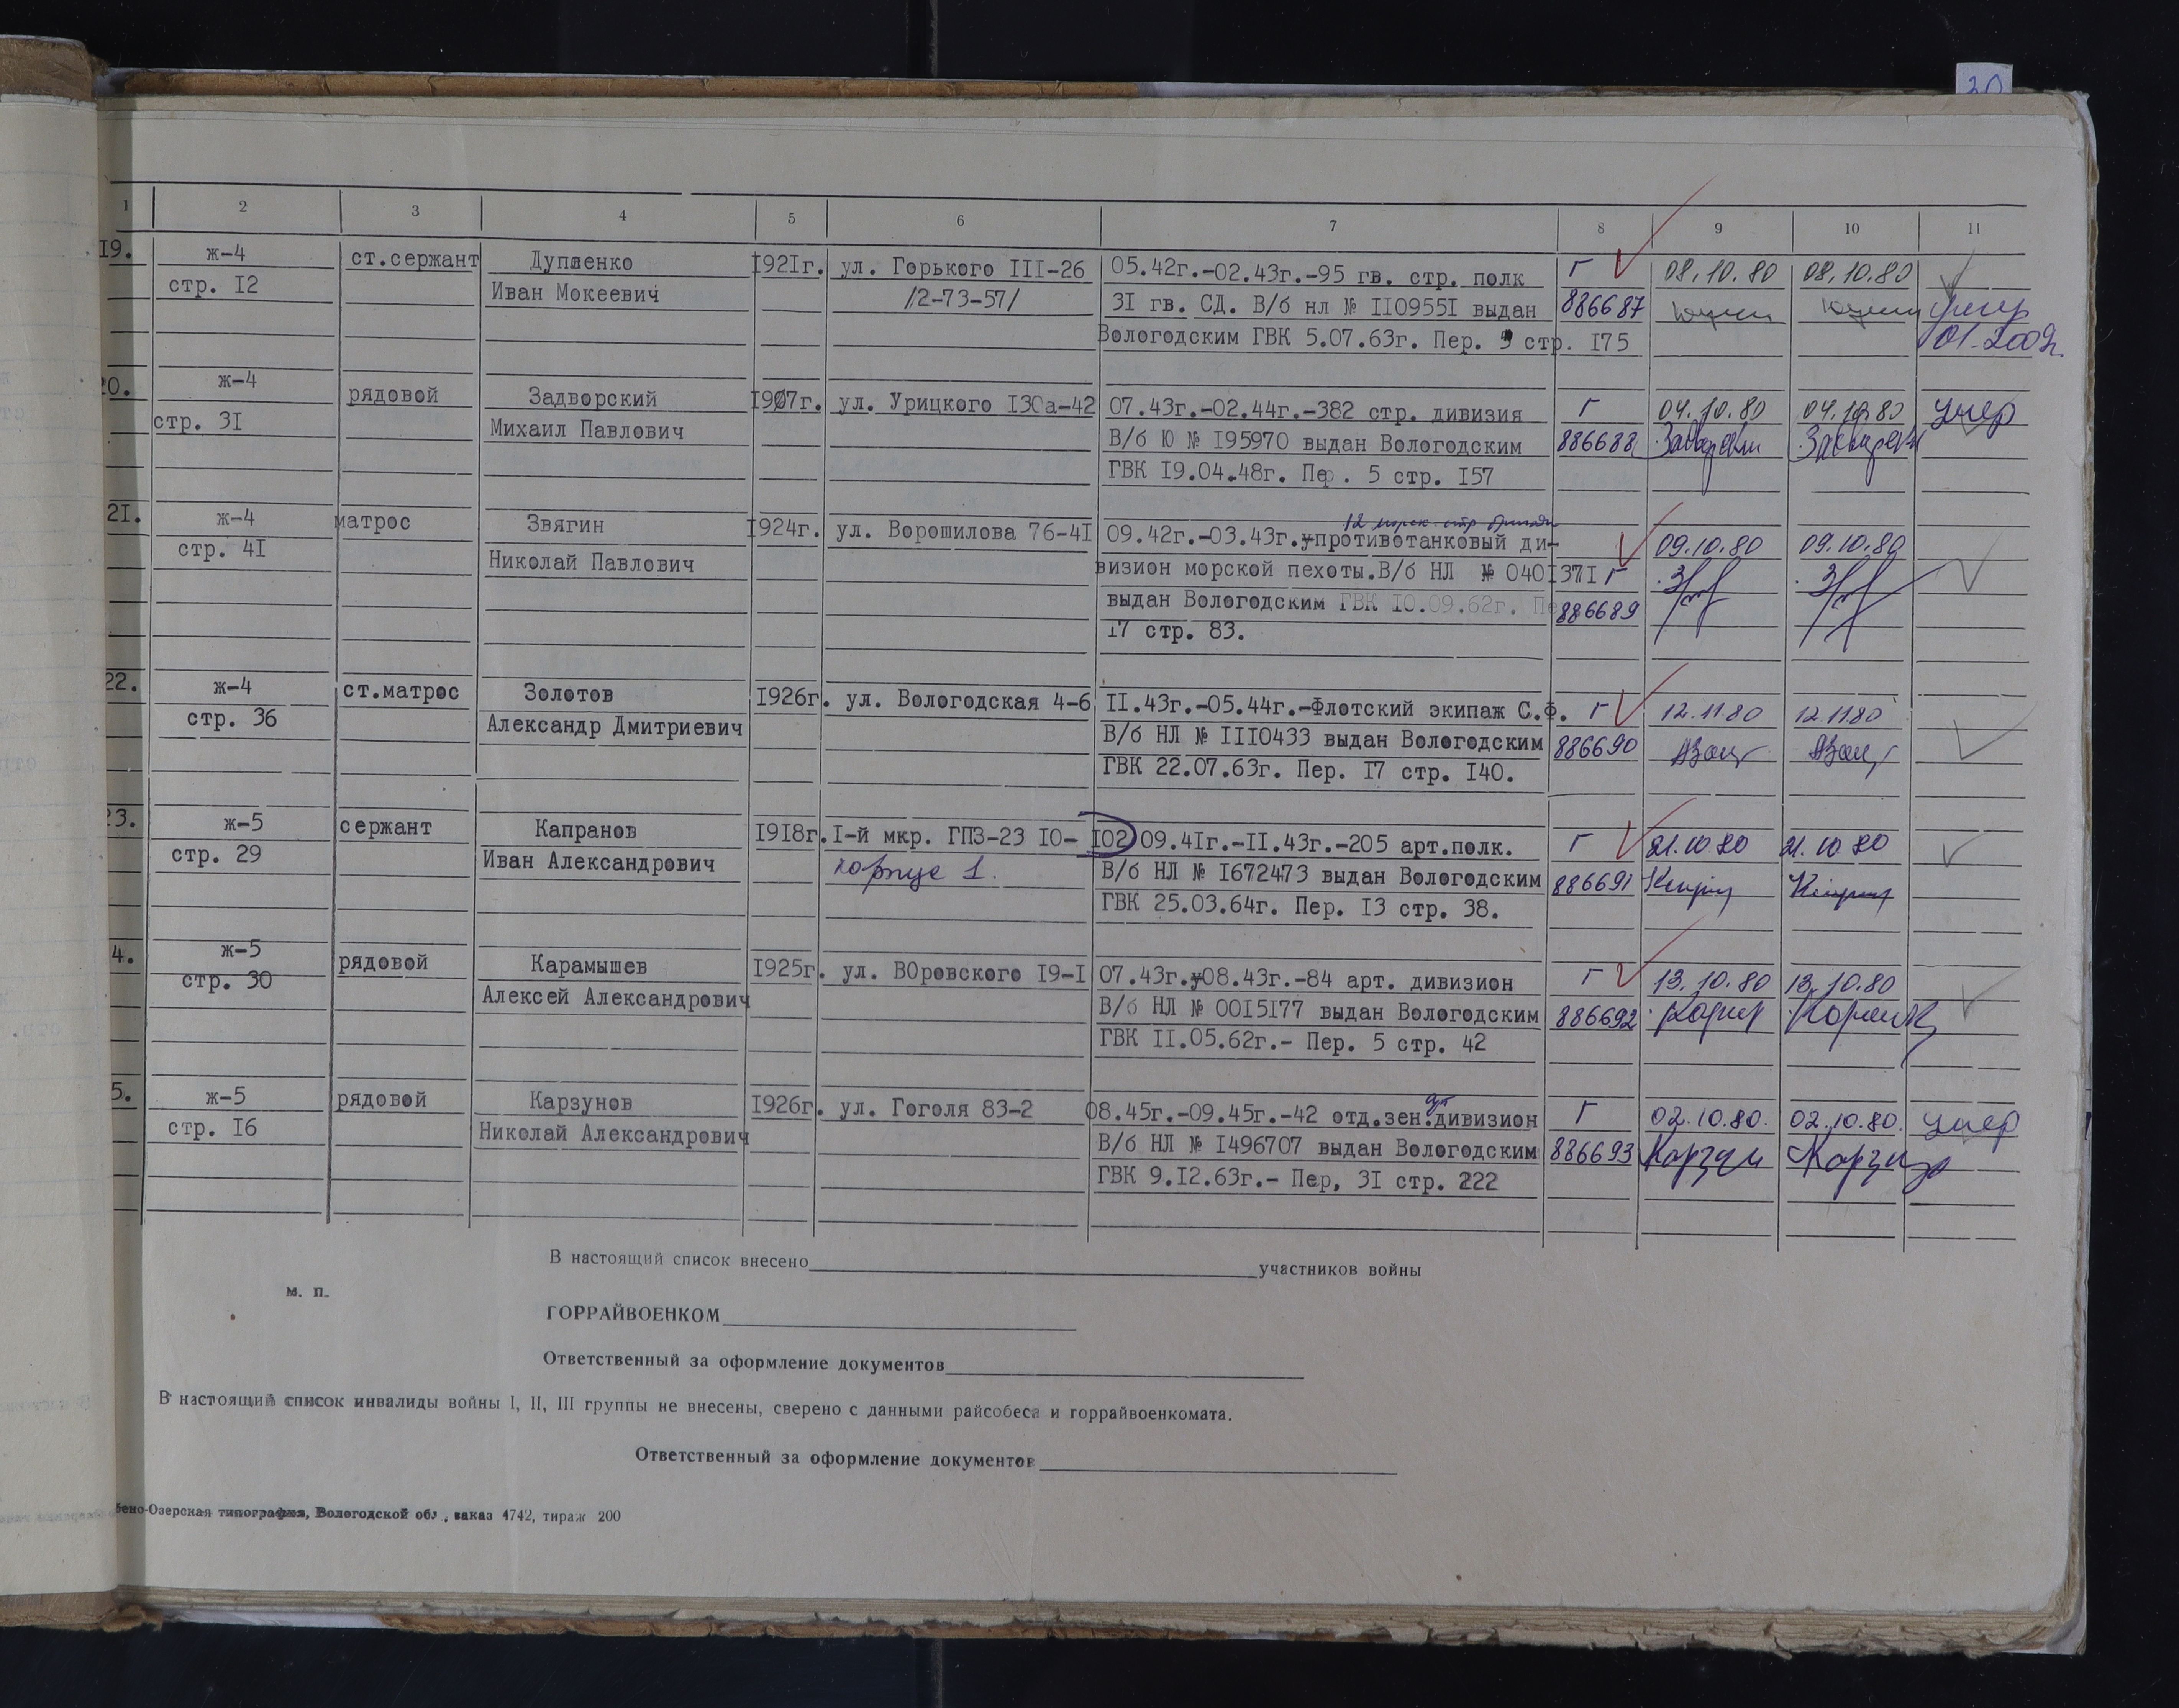 30
1 2 3 4 5 6 7 8 9 10 11
19. ж-4 ст.сержант Дупленко 1921г. ул. Горького III-26 05.42г.-02.43г.-95 гв. стр. полк Г 08.10.80 08.10.80
стр. 12 Иван Мокеевич /2-73-57/ 31 гв. СД. В/б нл № 1109551 выдан 886687 умер
Вологодским ГВК 5.07.63г. Пер. 9 стр. 175 01.2002г.
20. ж-4 рядовой Задворский 1907г. ул. Урицкого 130а-42 07.43г.-02.44г.-382 стр. дивизия Г 04.10.80 04.10.80 умер
стр. 31 Михаил Павлович В/б Ю № 195970 выдан Вологодским 886688
ГВК 19.04.48г. Пер. 5 стр. 157
12 морск. стр бригады
21. ж-4 матрос Звягин 1924г. ул. Ворошилова 76-41 09.42г.-03.43г.-противотанковый ди- 09.10.80 09.10.80
стр. 41 Николай Павлович визион морской пехоты.В/б НЛ № 0401371 Г
выдан Вологодским ГВК 10.09.62г. Пе 886689
17 стр. 83.
22. ж-4 ст.матрос Золотов 1926г. ул. Вологодская 4-6 11.43г.-05.44г.-Флотский экипаж С.Ф. Г 12.11.80 12.11.80
стр. 36 Александр Дмитриевич В/б НЛ № 1110433 выдан Вологодским 886690
ГВК 22.07.63г. Пер. 17 стр. 140.
23. ж-5 сержант Капранов 1918г. 1-й мкр. ГПЗ-23 10-102 09.41г.-11.43г.-205 арт.полк. Г 21.10.80 21.10.80
стр. 29 Иван Александрович корпус 1. В/б НЛ № 1672473 выдан Вологодским 886691
ГВК 25.03.64г. Пер. 13 стр. 38.
4. ж-5 рядовой Карамышев 1925г. ул. ВОровского 19-1 07.43г.-08.43г.-84 арт. дивизион Г 13.10.80 13.10.80
стр. 30 Алексей Александрович В/б НЛ № 0015177 выдан Вологодским 886692
ГВК 11.05.62г.- Пер. 5 стр. 42
5. ж-5 рядовой Карзунов 1926г. ул. Гоголя 83-2 08.45г.-09.45г.-42 отд.зен.дивизион Г 02.10.80. 02.10.80. умер
стр. 16 Николай Александрович В/б НЛ № 1496707 выдан Вологодским 886693
ГВК 9.12.63г.- Пер, 31 стр. 222
В настоящий список внесено участников войны
м. п.
ГОРРАЙВОЕНКОМ
Ответственный за оформление документов
В настоящий список инвалиды войны I, II, III группы не внесены, сверено с данными райсобеса и горрайвоенкомата.
Ответственный за оформление документов
бено-Озерская типография, Вологодской обл., заказ 4742, тираж 200